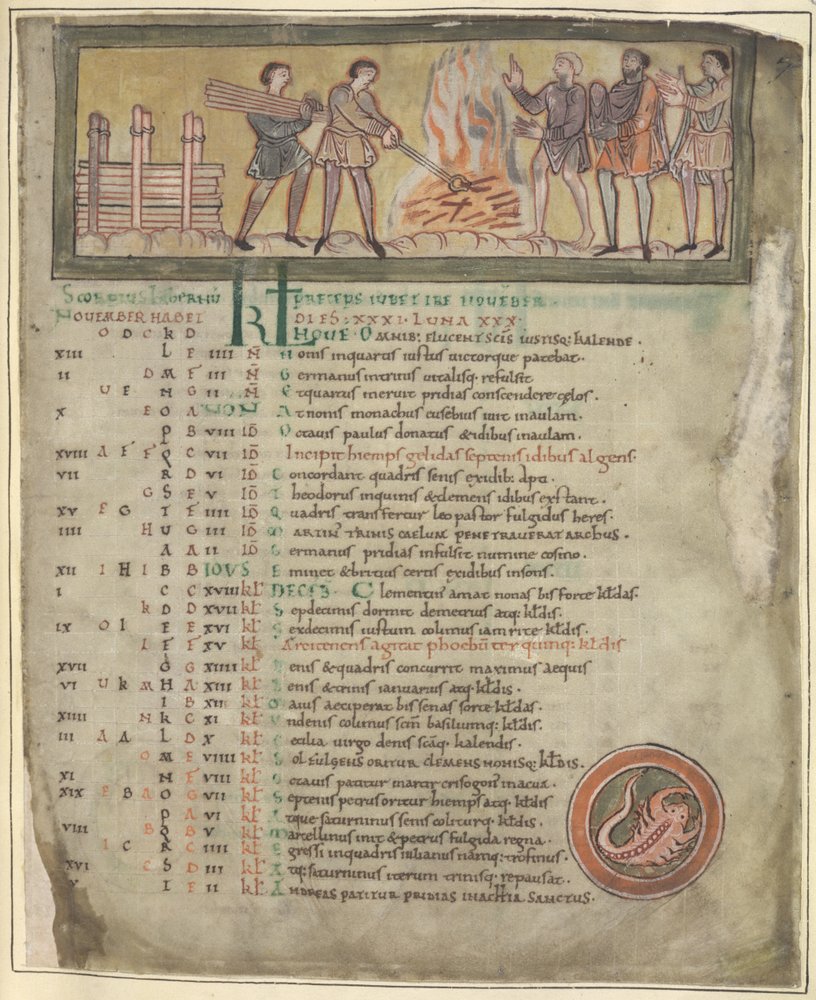 Scorpius hibernu KL preceps iubet ire november
November habet dies: XXXI · luna XXX ·
O D C K D hove · Omnib: elucent scis iustisq: kalende ·
XIII L E IIII N Nonis inquartis iustus victorque patebat ·
II D M F III N Germanus intritus vitalisq · refulsit
U E N G II N Et quartus meruit pridias conscendere celos ·
X E O A NON At nonis monachus eusebius ivit in aulam ·
P B VIII ID Octavis paulus donatus & idibus in aulam ·
XVIII A F F Q C VII ID Incipit hiemps gelidas septenis idibus algens ·
VII R D VI ID Concordant quadris senis ex idib:
G S E V ID Theodorus inquinis & clemens idibus exstant ·
XV F G T F IIII ID Quadris transfertur leo pastor fulgidus heres ·
IIII H U G III ID Martin trinis caelum penetraverat arcbus ·
A A II ID Germanus pridias infulsit numine cosmo ·
XII I H I B B IDVS Eminet & britius certis ex idibus insons ·
I C C XVIII kl DECEB · Clementin amat nonas bis forte kldas ·
k D D XVII kl Sepdecimis dormit demetrius atq: kldis ·
IX O I E E XVI kl Sexdecimis iustum colimus iam rite · kldis ·
I F F XV kl Arcitenens agitat phoebum ter quinq: kldis
XVII G G XIIII kl Lenis & quadris concurrit maximus aequis
VI U k M H A XIII kl Lenis & trinis ianuarius atq · kldis ·
I B XII kl Oaius aeciperat bis senas sorte kldas ·
XIIII N k C XI kl Undenis colimus scm basiliumq: kldis ·
III A A L D X kl Cecilia virgo denis scaq · kalendis ·
O M E VIIII kl Sol fulgens oritur clemens nonisq: kldis ·
XI N F VIII kl Octavis patitur martir crisogon inacua ·
XIX E B A O G VII kl Septenis petrus oritur hiemps atq · kldis
P A VI kl Atque saturninus senis colitur q: kldis ·
VIII B Q B V kl Martellinus init & petrus fulgida regna ·
I C R C IIII kl Egressi inquadris iulianus namq: trofinus ·
XVI C S D III kl Atq: saturninus iterum trinisq · repausat ·
V T E II kl Andreas patitur pridias in achia sanctus ·